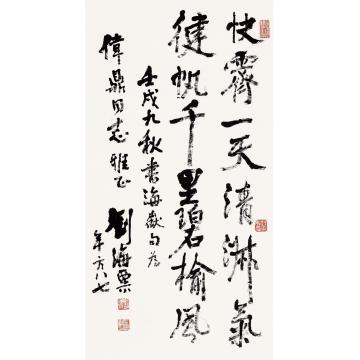 快霽一天清淋氣
健帆千里碧榆風
壬戌九秋書海嶽句為
偉鼎同志雅正
劉海粟
年方八七